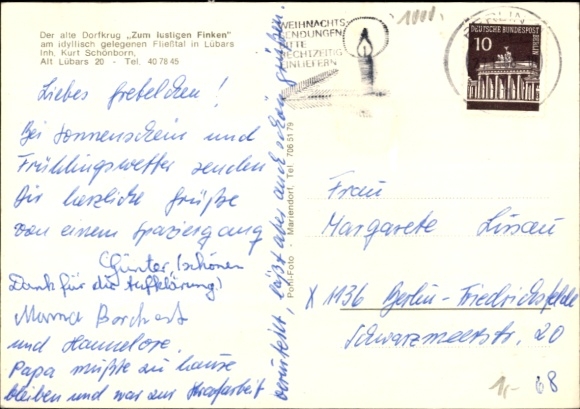 Der alte Dorfkrug „Zum lustigen Finken"
am idyllisch gelegenen Fließtal in Lübars
Inh. Kurt Schönborn,
Alt Lübars 20 - Tel. 40 78 45
WEIHNACHTS-
SENDUNGEN
BITTE
RECHTZEITIG
EINLIEFERN
BERLIN
DEUTSCHE BUNDESPOST
BERLIN
10
Liebes Gretelchen!
Bei Sonnenschein und
Frühlingswetter senden
Dir herzliche Grüße
von einem Spaziergang
Günter, (schönen
Dank für die Aufklärung)
Mama Borchert
und Hannelore.
Papa mußte zu hause
bleiben und war zur Strafarbeit
verurteilt, läßt aber auch schön grüßen.
Pohl-Foto - Mariendorf, Tel. 706 51 79
Frau
Margarete Lissau
X 1136 Berlin-Friedrichsfelde
Schwarzmeerstr. 20
1,- 68